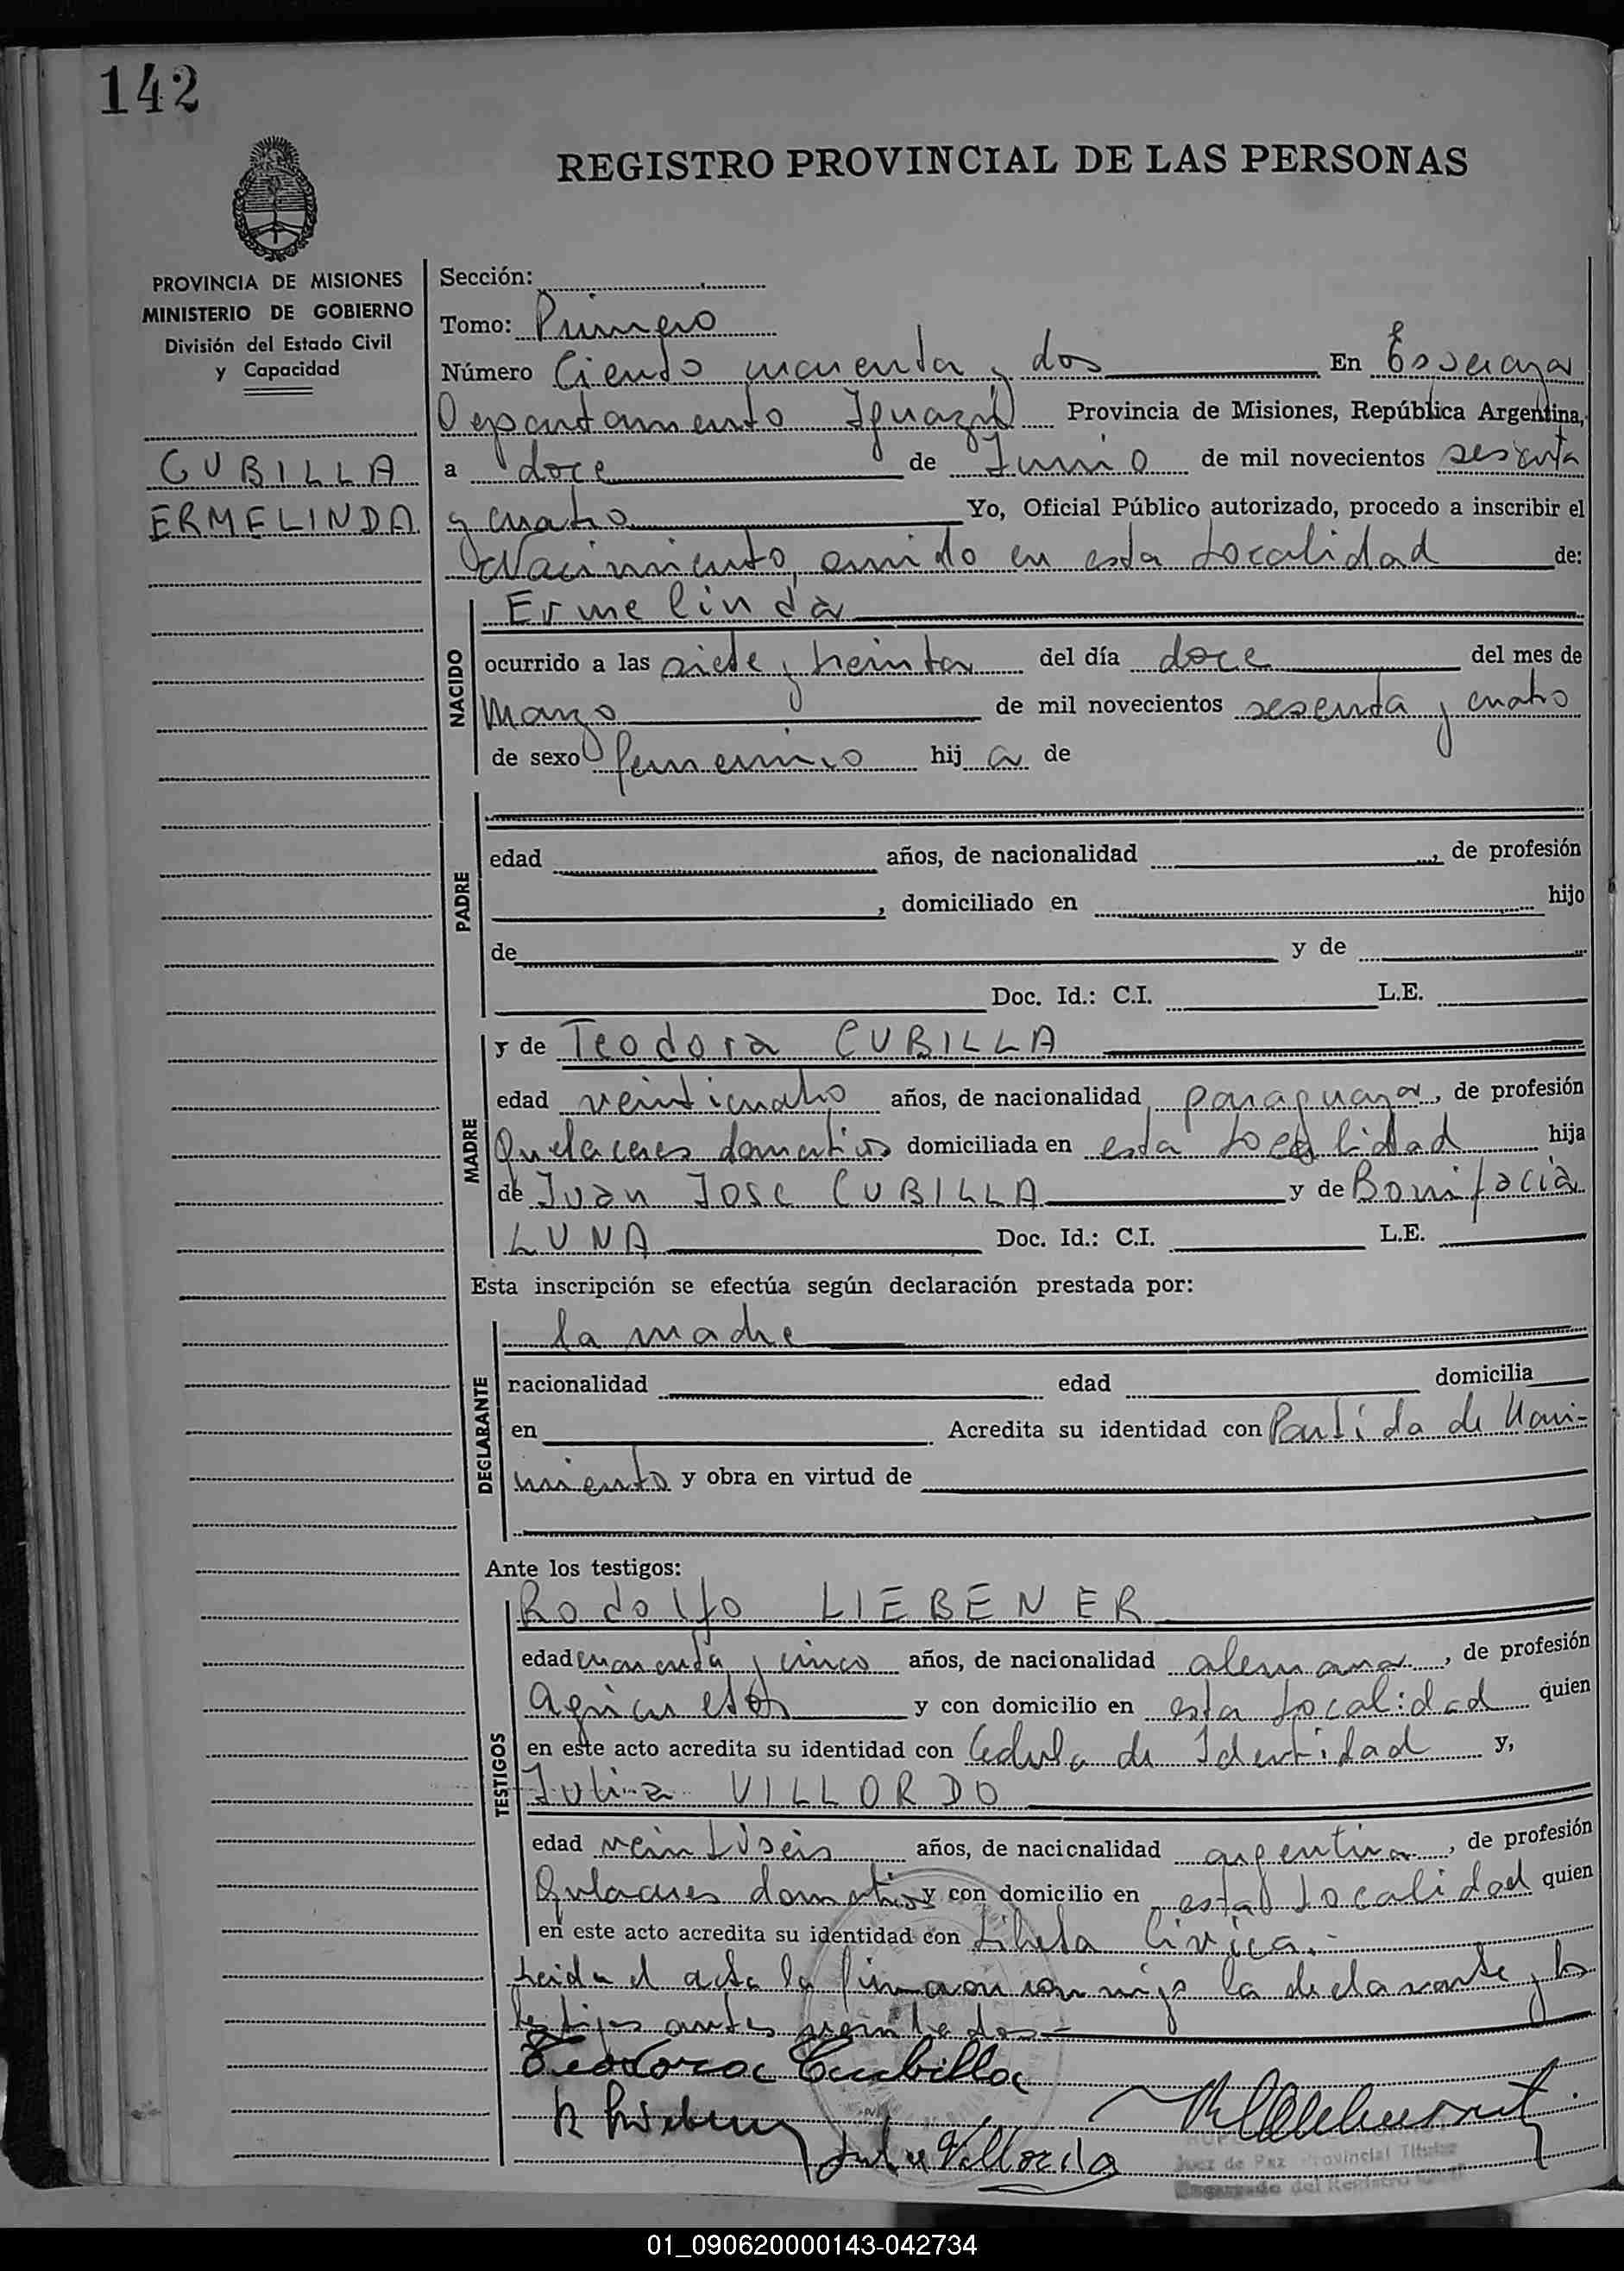 142
REGISTRO PROVINCIAL DE LAS PERSONAS
PROVINCIA DE MISIONES
MINISTERIO DE GOBIERNO
División del Estado Civil
y Capacidad
CUBILLA
ERMELINDA
Sección:
Tomo: Primero
Número Ciento cuarenta y dos En
Departamento Iguazú Provincia de Misiones, República Argentina,
a doce de Junio de mil novecientos sesenta
y cuatro Yo, Oficial Público autorizado, procedo a inscribir el
Nacimiento, ocurrido en esta Localidad de:
NACIDO
Ermelinda
ocurrido a las siete y treinta del día doce del mes de
Marzo de mil novecientos sesenta y cuatro
de sexo femenino hija de
PADRE
edad años, de nacionalidad , de profesión
, domiciliado en hijo
de y de
Doc. Id.: C.I. L.E.
MADRE
y de Teodora CUBILLA
edad veinticuatro años, de nacionalidad paraguaya, de profesión
Quehaceres domesticos domiciliada en esta Localidad hija
de Juan Jose CUBILLA y de Bonifacia
LUNA Doc. Id.: C.I. L.E.
Esta inscripción se efectúa según declaración prestada por:
DECLARANTE
la madre
racionalidad edad domicilia
en . Acredita su identidad con Partida de Naci-
miento y obra en virtud de
Ante los testigos:
TESTIGOS
Rodolfo LIEBENER
edad cuarenta y cinco años, de nacionalidad alemana, de profesión
Agricultor y con domicilio en esta Localidad quien
en este acto acredita su identidad con Cedula de Identidad y,
Julia VILLORDO
edad veintiseis años, de nacionalidad argentina, de profesión
Quehaceres domesticos y con domicilio en esta Localidad quien
en este acto acredita su identidad con Libreta Civica.-
Leida el acta la firmaron conmigo la declarante y los
testigos antes nombrados.-
Teodora Cubilla
R Liebener
Julia Villordo
Juez de Paz Provincial Titular
Encargado del Registro Civil
01_090620000143-042734